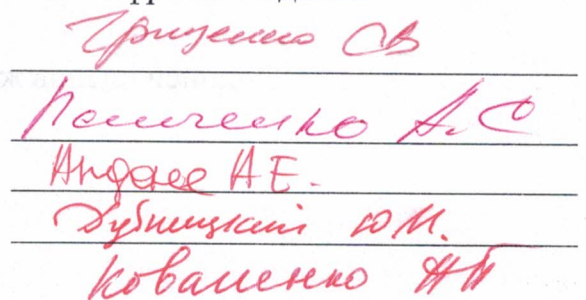 Гриценко СВ
Панченко А.С
А.Е.
Дубницкий Ю.М.
Коваленко НП